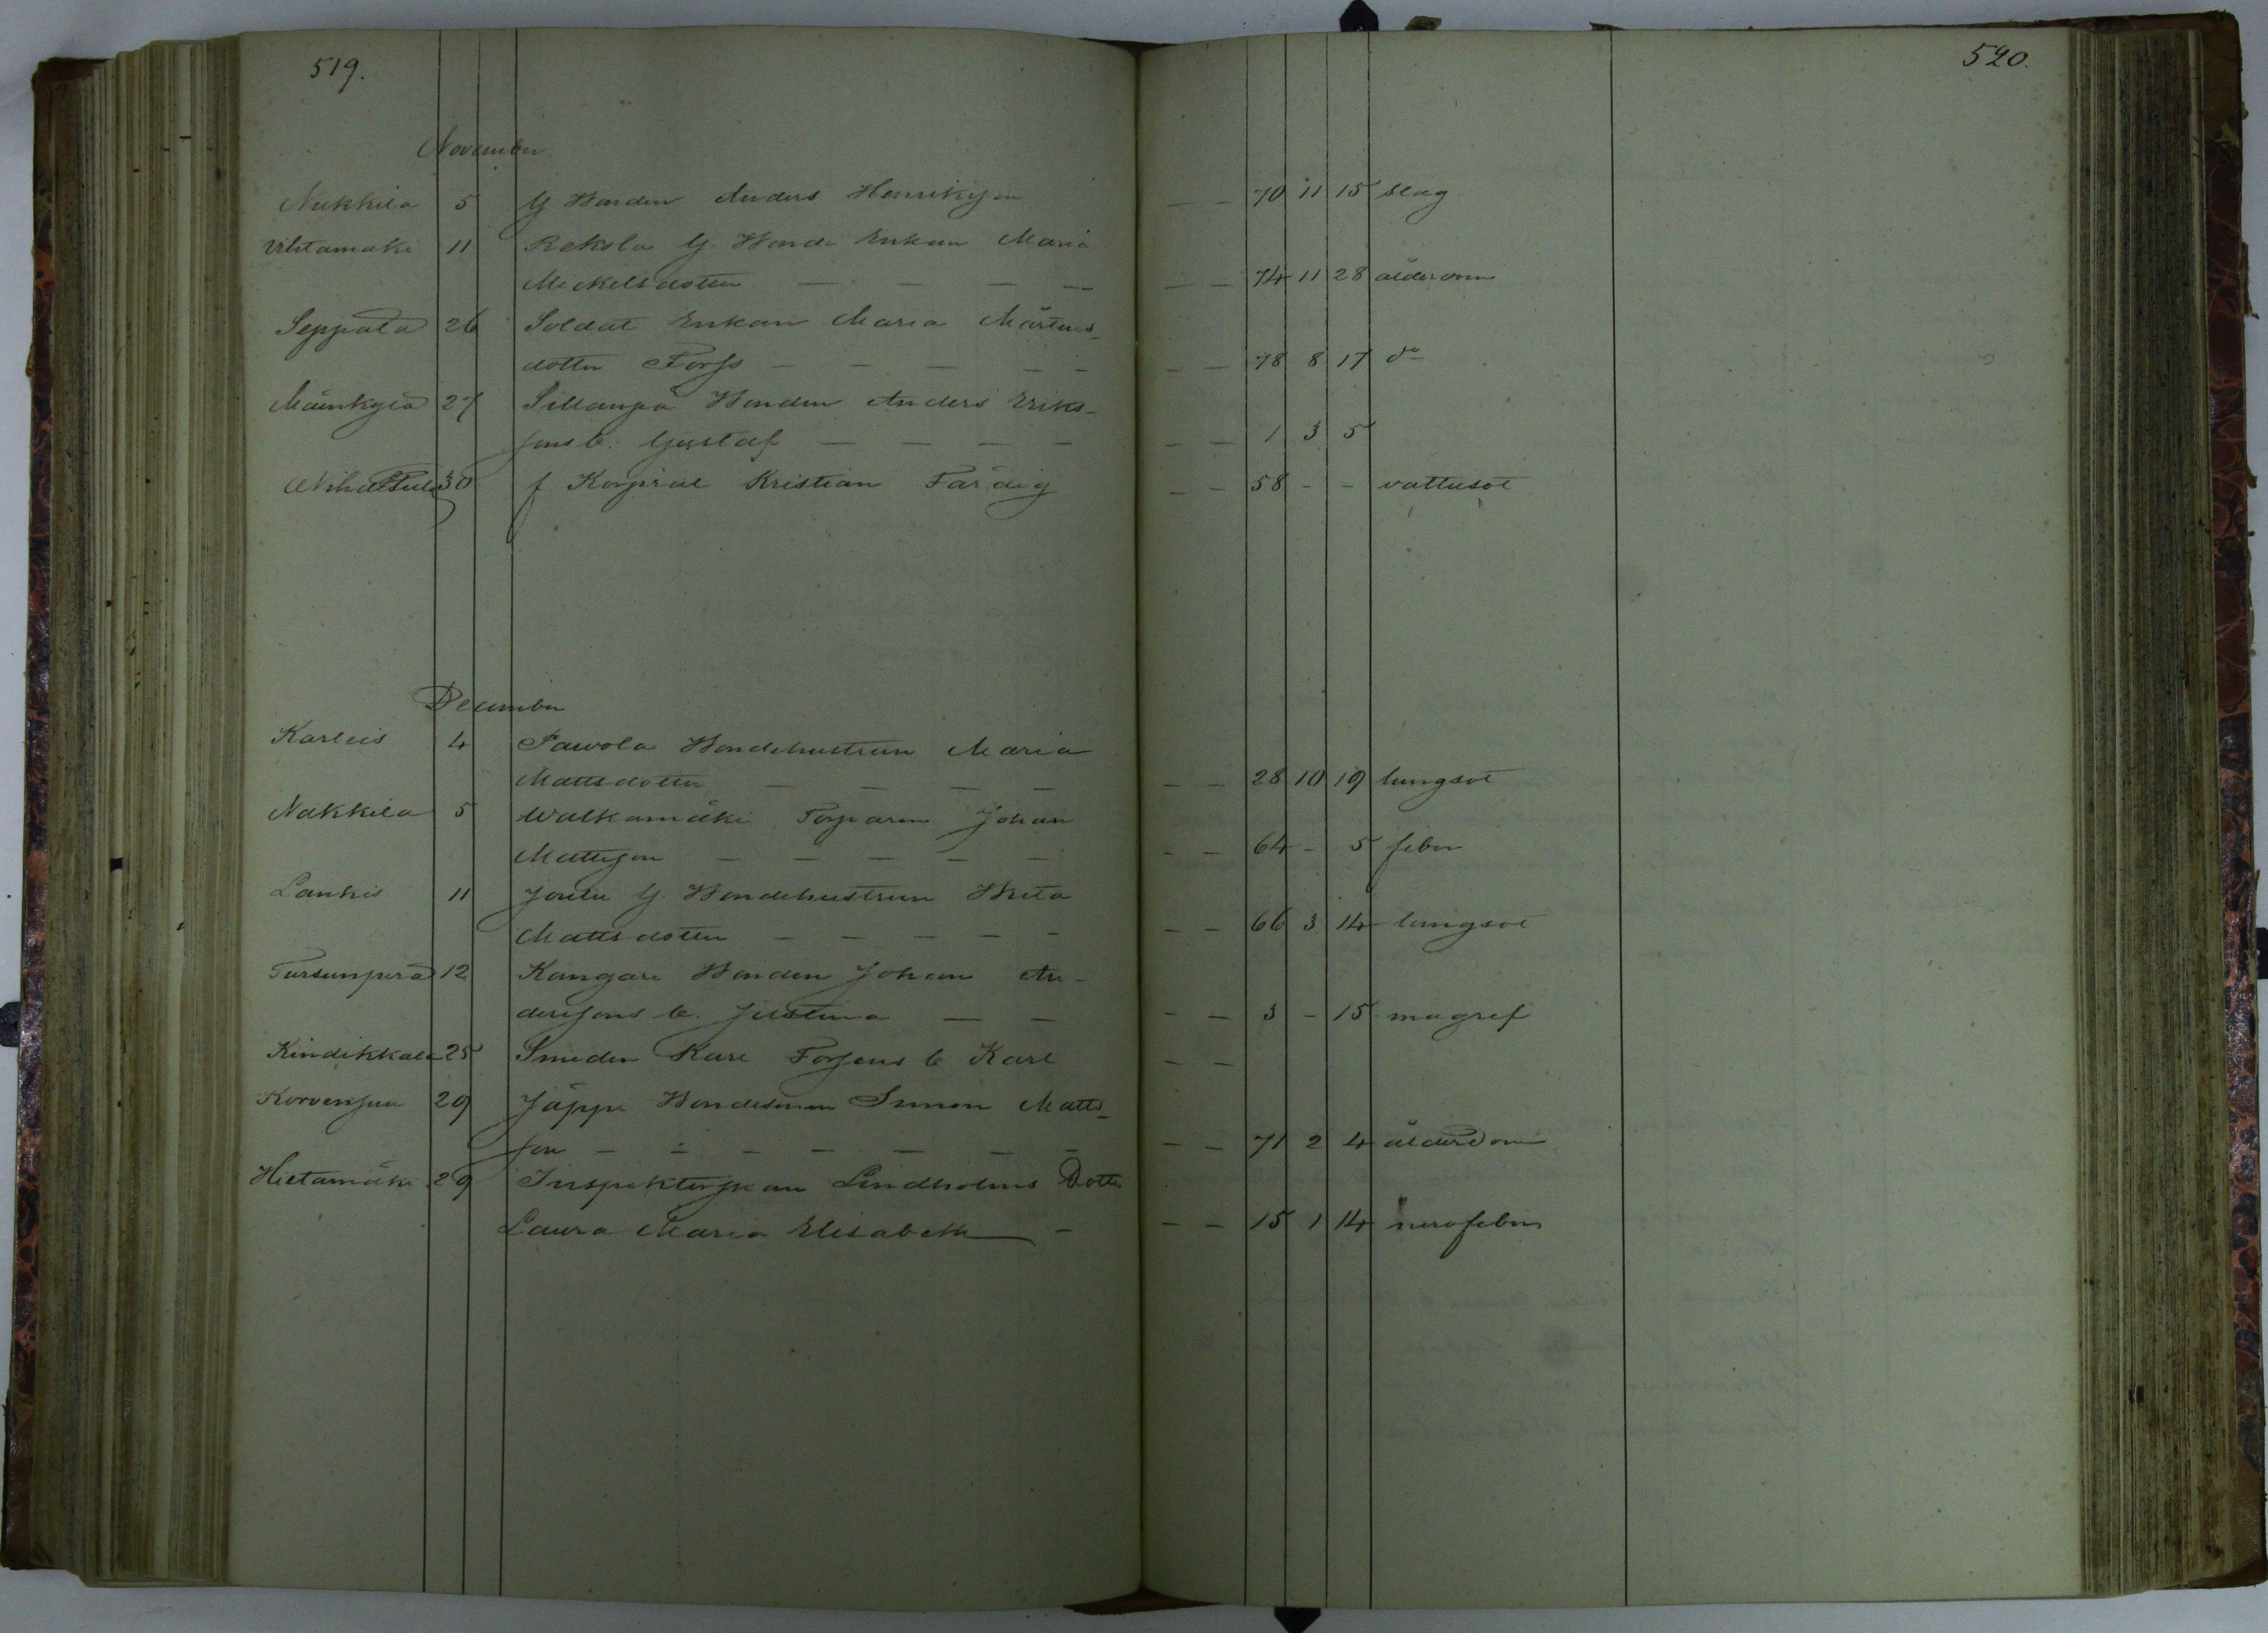 519.
520.
November
Nakkila 5 G Bonden Anders Henriksson — — 70 11 15 slag
Viljtamaki 11 Rekola G. Bonde Enkan Maria
Mickelsdotter — — — — — — 74 11 28 ålderdom
Seppälä 26 Soldat Enkan Maria Mårtens-
dotter Forss — — — — — — — 78 8 17 do
27 Sillanpä Bonden Anders Eriks-
sons b. Gustaf — — — — — — 1 3 5
30 f. Korpral Kristian Färdig — — 58 - - vattusot
December
Karleis 4 Pawola Bondehustrun Maria
Mattsdotter — — — — — — 28 10 19 lungsot
Nakkila 5 Walkamäki Torparen Johan
Mattsson — — — — — — — 64 - 5 feber
Lankis 11 Joutu G. Bondehustrun Brita
Mattsdotter — — — — — — — 66 3 14 lungsot
Tursunperä 12 Kangare Bonden Johan An-
derssons b. Justina — — — — 3 - 15 magref
Kindikkala 25 Smeden Karl Forsens b Karl — —
Korvensuu 29 Jäppi Bondesonen Simon Matts-
son — — — — — — — — — 71 2 4 ålderdom
Hietamäki 29 Inspektorskan Lindholms Dotter
Laura Maria Elisabeth — — — 15 1 14 nervfeber